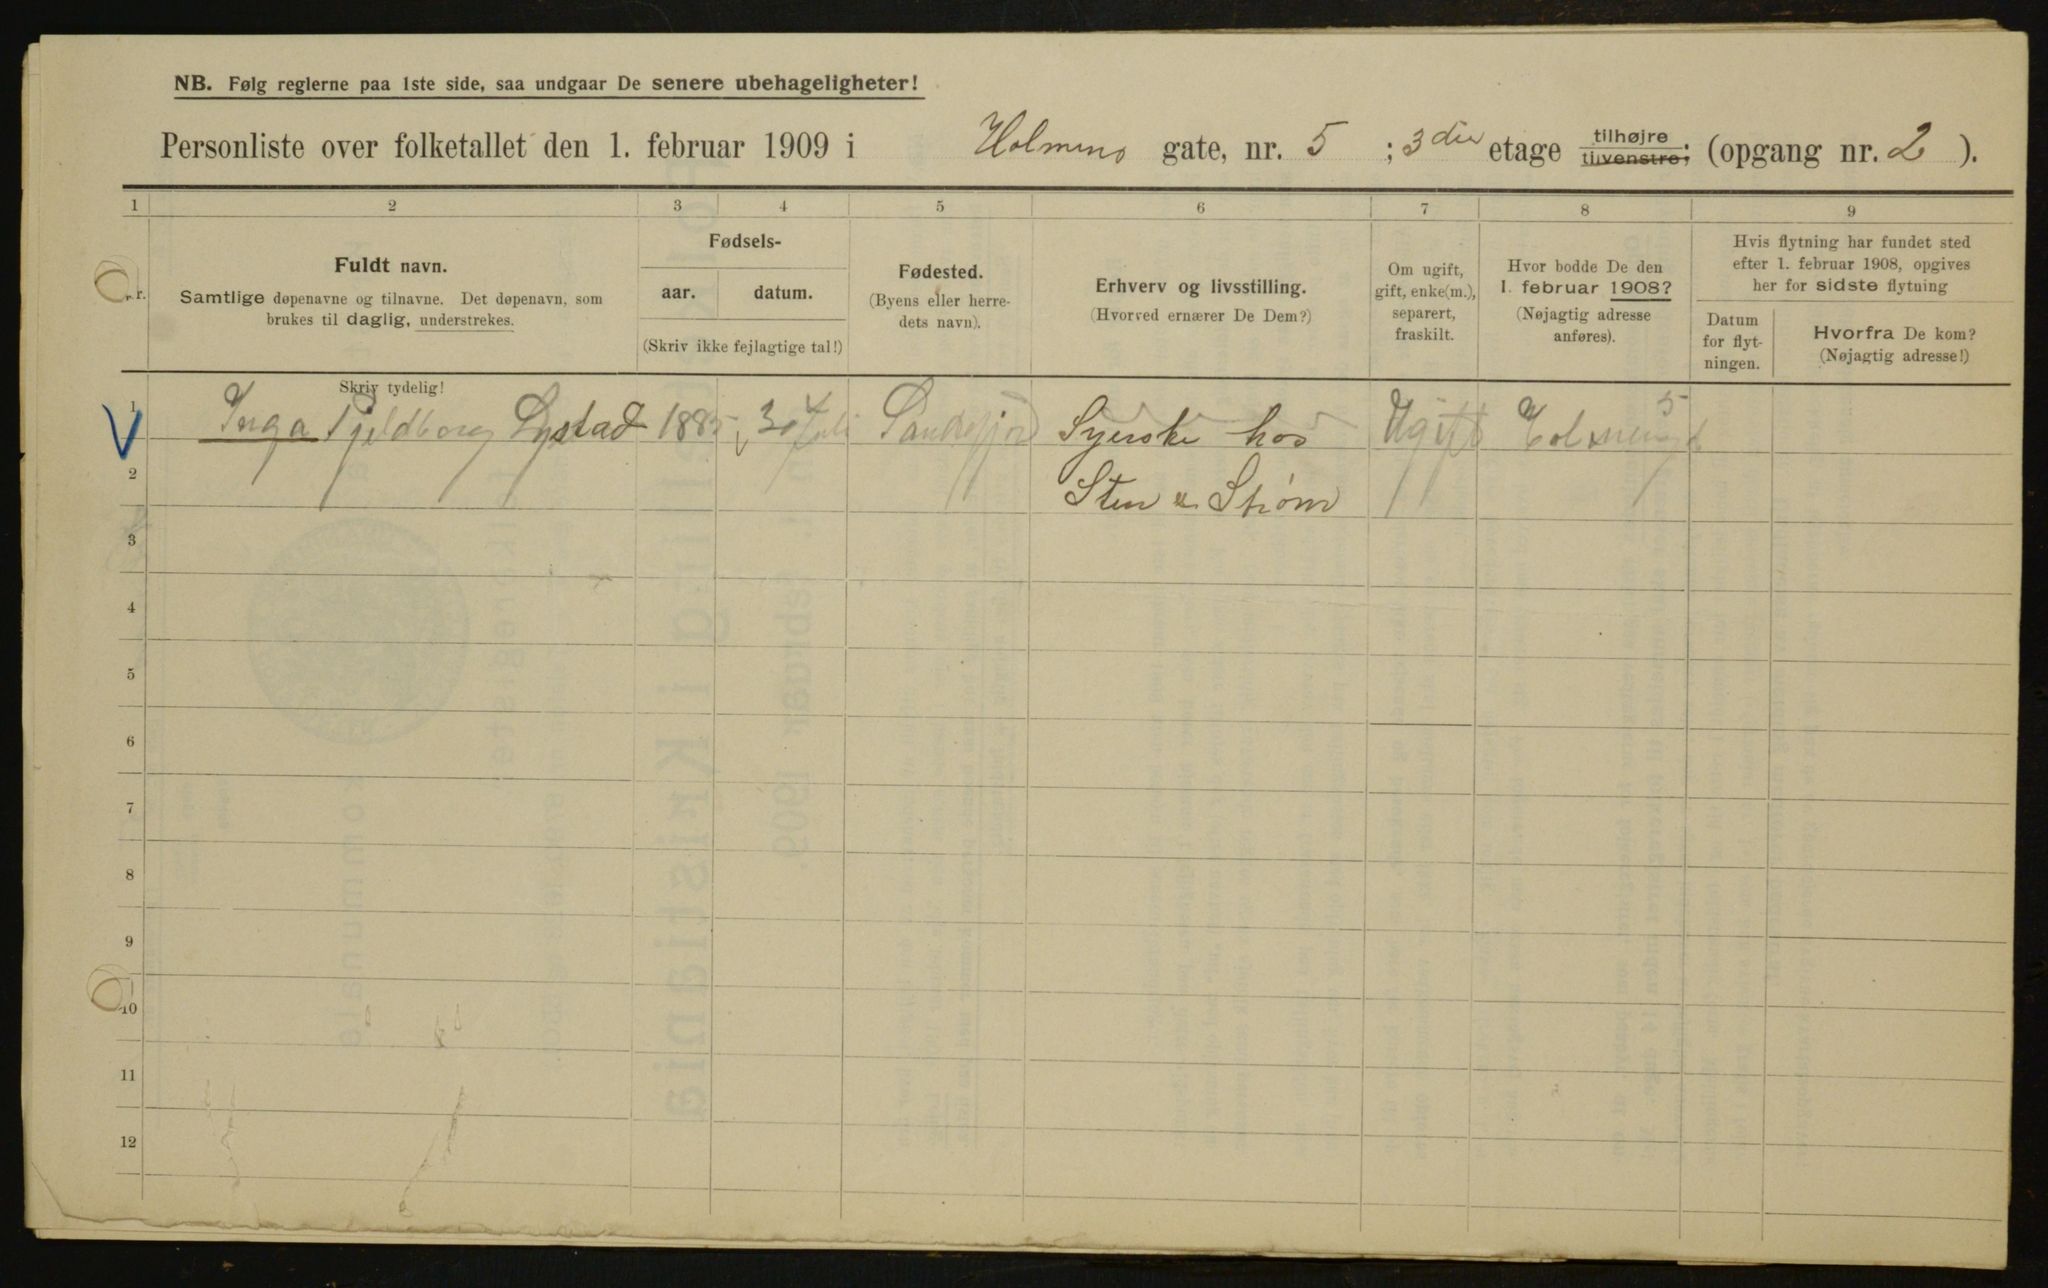 NB. Følg reglerne paa 1ste side, saa undgaar De senere ubehageligheter!
Personliste over folketallet den 1. februar 1909 i Holmens gate, nr. 5 ; 3die etage tilhøjre tilvenstre; (opgang nr. 2 ).
1 2 3 4 5 6 7 8 9
Nr.
Fuldt navn.
Samtlige døpenavne og tilnavne. Det døpenavn, som
brukes til daglig, understrekes.
Skriv tydelig!
Fødsels-
aar. datum.
(Skriv ikke fejlagtige tal!)
Fødested.
(Byens eller herre-
dets navn).
Erhverv og livsstilling.
(Hvorved ernærer De Dem?)
Om ugift,
gift, enke(m.),
separert,
fraskilt.
Hvor bodde De den
1. februar 1908?
(Nøjagtig adresse
anføres).
Hvis flytning har fundet sted
efter 1. februar 1908, opgives
her for sidste flytning
Datum
for flyt-
ningen.
Hvorfra De kom?
(Nøjagtig adresse!)
1 Inga Fjeldborg Lystad 1885 Sandefjord Syerske hos Ugift Holmensgt 5
2 Sten & Strøm
3
4
5
6
7
8
9
10
11
12